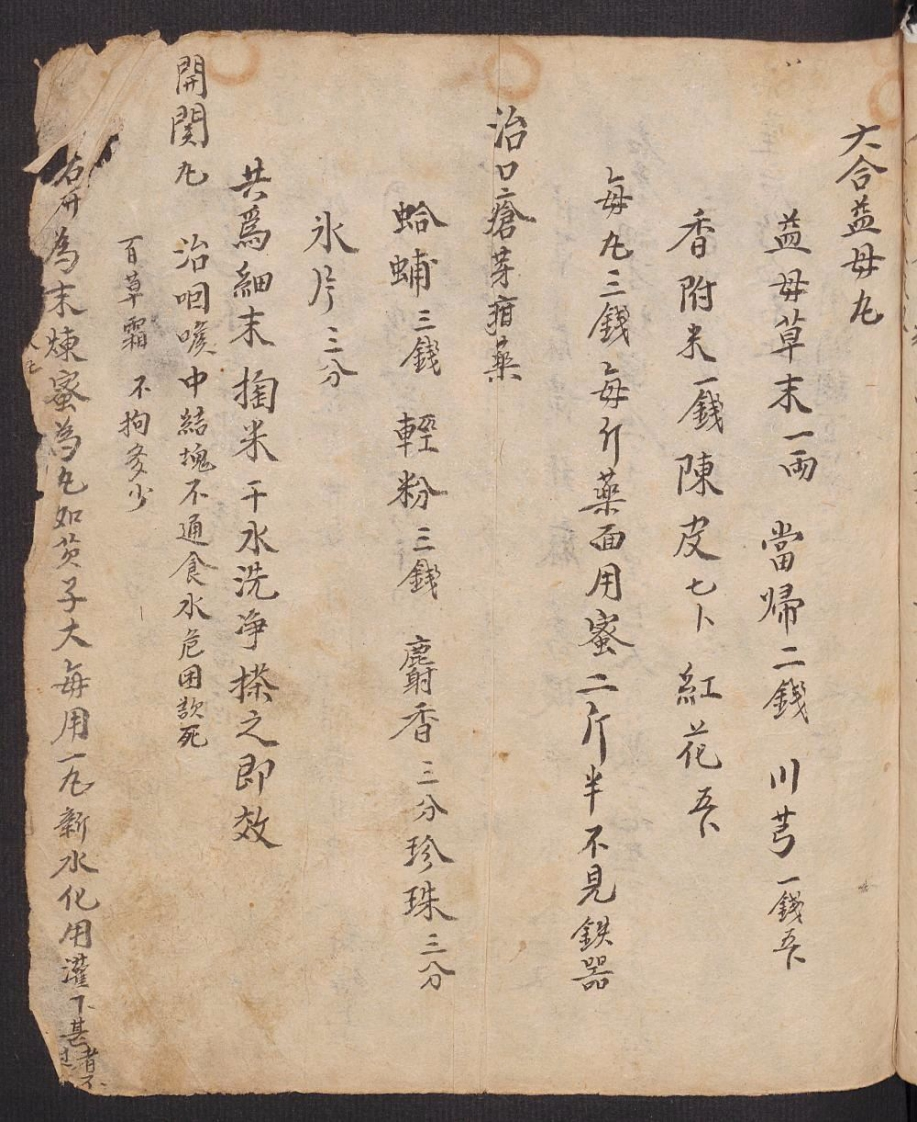 大合益母丸
益母草末一両 當帰二錢 川芎一錢五卜
香附米一錢陳皮七卜 紅花五卜
每丸三錢每斤藥面用蜜二斤半不見鉄器
治口瘡芽疳藥
蛤蜅三錢 輕粉三錢 麝香三分珍珠三分
氷片三分
共爲細末掏米干水洗净搽之即效
開関丸 治咽喉中結塊不通食水危困欬死
百草霜 不拘多少
右 為末煉蜜為丸如芡子大每用一丸新水化用灌下甚者不
过